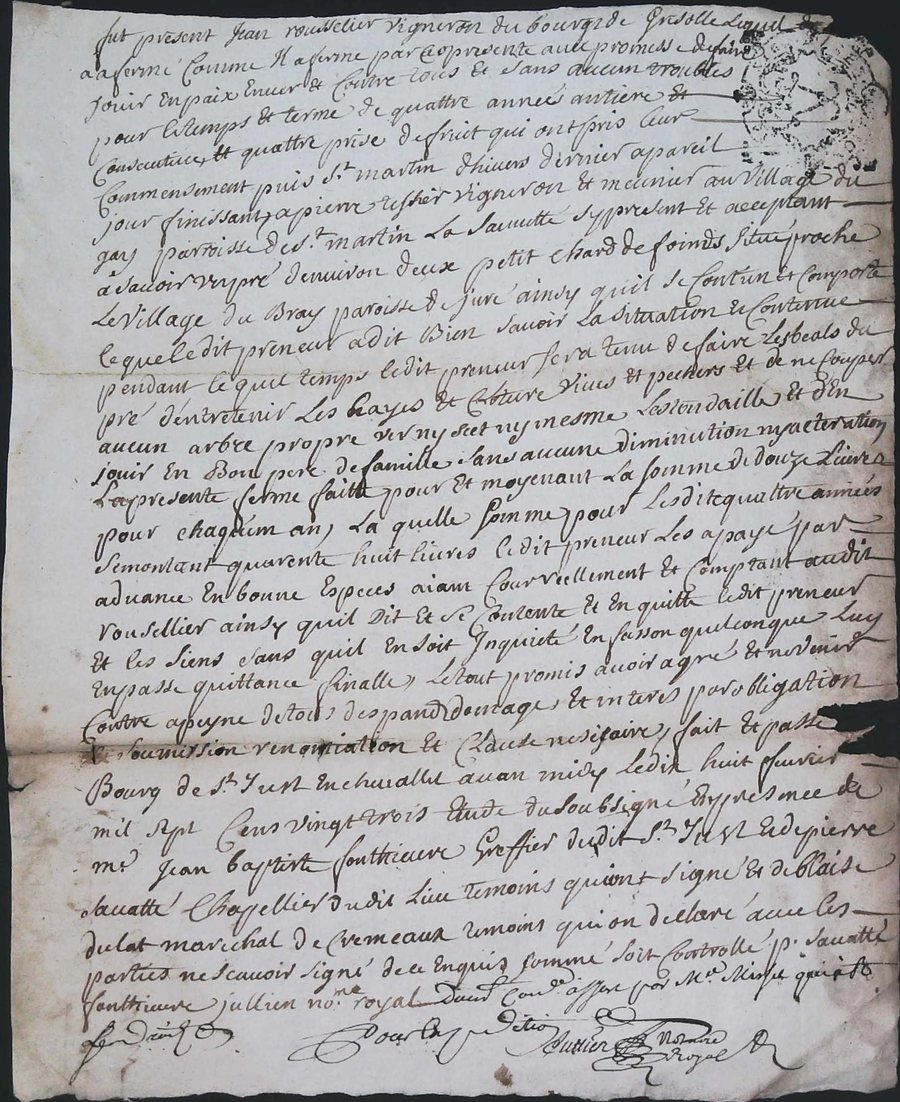 fut present Jean rousselier vigneron du bourg de Gresolle Lequel
a afermé Comme Il aferme par Ce presente avec promesse de faire
Jouir En paix Enver et Contre tous et sans aucun troubles
pour letemps et terme de quattre années antiere et
Consecutive et quattre prise de fruit qui ont pris leur
Commensement puis St martin dhivers dernier a pareil
jour finissant, a pierre tissier vigneron et meunier au village du
gay parroisse de st martin La sauvetté sy present et acceptant
a savoir un pré denviron deux petit chard de foinds situé proche
Le village du Bray paroisse de juré ainsy quil se Contien et Comporte
lequel ledit preneur a dit Bien savoir La situation et Contenue
pendant le quel temps ledit preneur sera tenu de faire Les beals du
pré d'entretenir Les hayes et Cloture vives et pechers et de ne Couper
aucun arbre propre verny seet ny mesme Les tondaille, et d'En
jouir En Bon pere de famille sans aucune diminution ny alteration
La presente ferme faitte pour et moyenant La somme de douze Livres
pour chaquem an, La quelle somme pour Lesdite quattre années
se montant quarente huit livres ledit preneur Les a payé par
advance En bonne Especes aiant Cour reellement et Comptant audit
rousellier ainsy quil Dit et se Contente et En quitte ledit preneur
et les siens sans quil En soit Inquieté En fasson quelconque Luy
En passe quittance finalle, Letout promis avoir agré et ne venir
Contre a peyne de tous despand, domage, et interes par obligation
soumission renonciation et Clause nesisaire, fait et passé
Bourg de St Just En chevallet avan midy Ledix huit fevrier
mil sept Cens vingt trois Etude du soubsigné En presence de
me Jean baptiste fonthieure Greffier dudit St Just et de pierre
savatté Chapellier dudit Lieu temoins qui ont signé et de blaise
dulat marechal de Cremeaux temoins qui on declaré avec les
parties ne scavoir signé de ce Enquis sommé soit Controllé p. savatté
fonthieure jullien nore royal par Me qui est
Pour Expedition Notaire
Royal